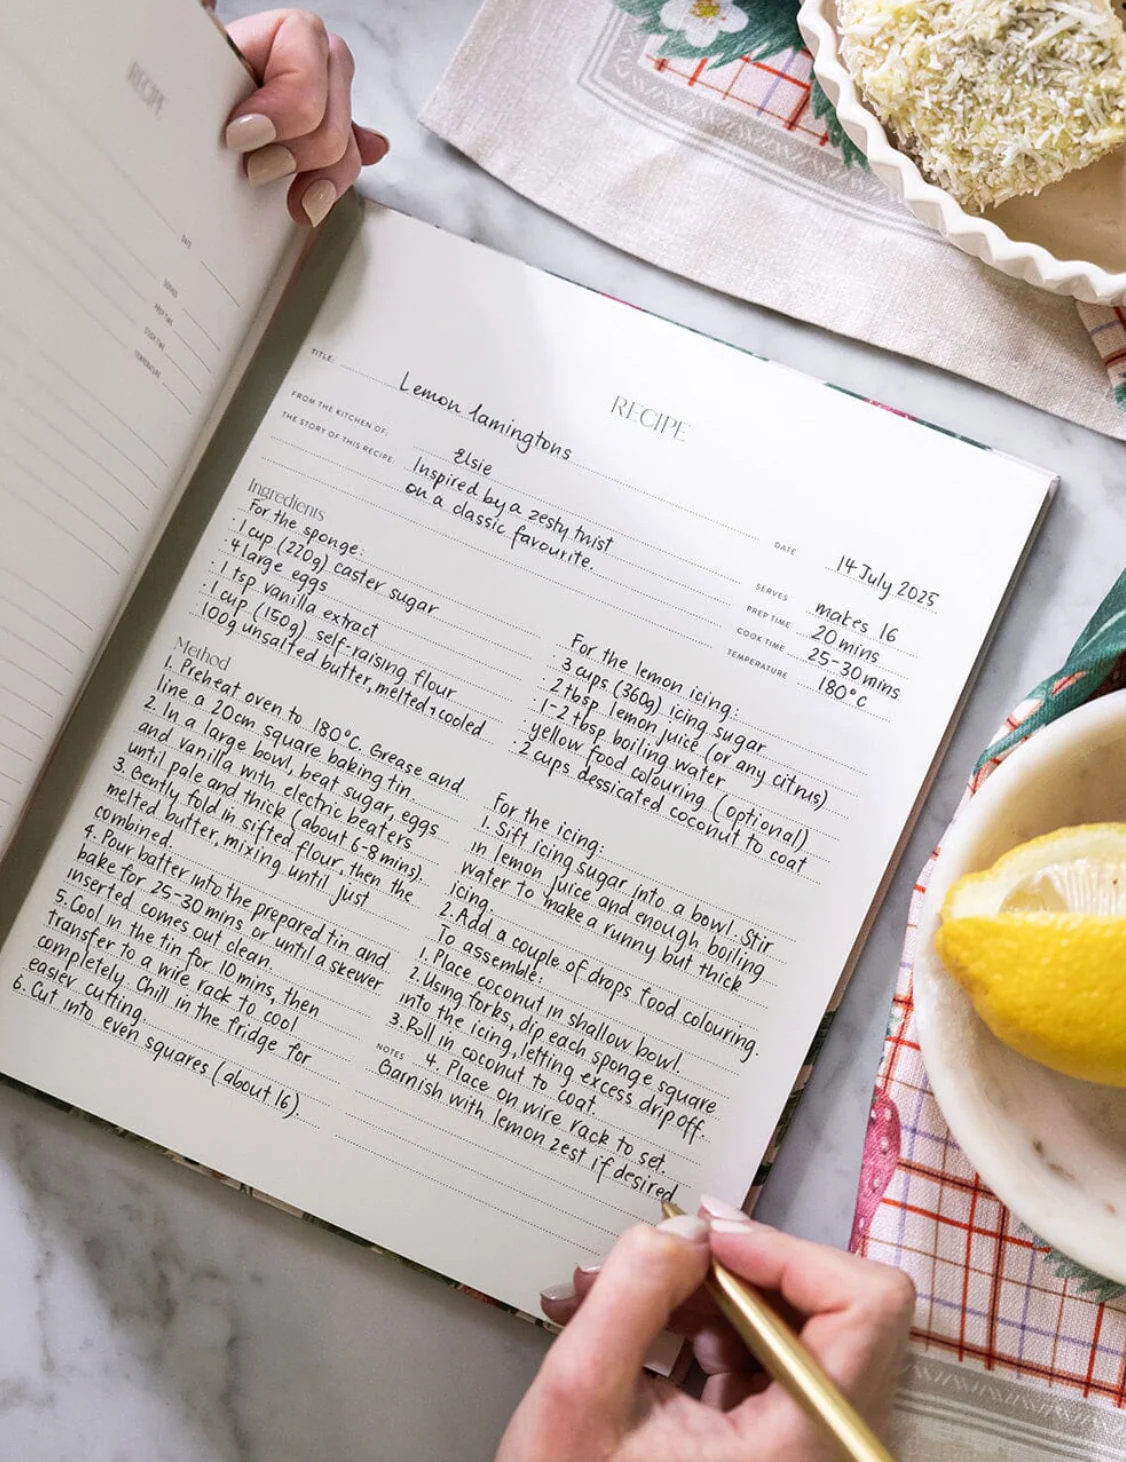 RECIPE
DATE
SERVES
PREP TIME
COOK TIME
TEMPERATURE
RECIPE
TITLE: Lemon lamingtons
FROM THE KITCHEN OF: Elsie
THE STORY OF THIS RECIPE: Inspired by a zesty twist
on a classic favourite.
DATE 14 July 2025
SERVES makes 16
PREP TIME 20 mins
COOK TIME 25-30 mins
TEMPERATURE 180°C
Ingredients
For the sponge:
· 1 cup (220g) caster sugar
· 4 large eggs
· 1 tsp vanilla extract
· 1 cup (150g) self-raising flour
100g unsalted butter, melted + cooled
For the lemon icing:
· 3 cups (360g) icing sugar
· 2 tbsp lemon juice (or any citrus)
· 1-2 tbsp boiling water
· yellow food colouring (optional)
· 2 cups dessicated coconut to coat
Method
1. Preheat oven to 180°C. Grease and
line a 20cm square baking tin.
2. In a large bowl, beat sugar, eggs
and vanilla with electric beaters
until pale and thick (about 6-8 mins).
3. Gently fold in sifted flour, then the
melted butter, mixing until just
combined.
4. Pour batter into the prepared tin and
bake for 25-30 mins or until a skewer
inserted comes out clean.
5. Cool in the tin for 10 mins, then
transfer to a wire rack to cool
completely. Chill in the fridge for
easier cutting.
6. Cut into even squares (about 16).
For the icing:
1. Sift icing sugar into a bowl. Stir
in lemon juice and enough boiling
water to make a runny but thick
icing.
2. Add a couple of drops food colouring.
To assemble:
1. Place coconut in shallow bowl.
2. Using forks, dip each sponge square
into the icing, letting excess drip off.
3. Roll in coconut to coat.
NOTES 4. Place on wire rack to set.
Garnish with lemon zest if desired